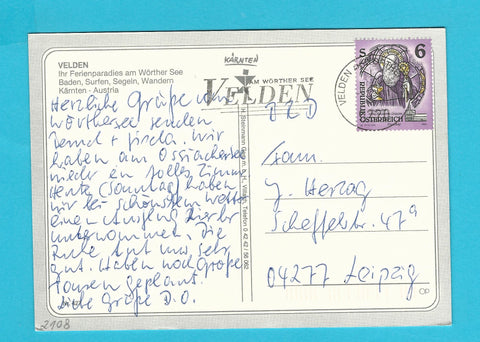 VELDEN
Ihr Ferienparadies am Wörther See
Baden, Surfen, Segeln, Wandern
Kärnten - Austria
Herzliche Grüße vom
Wörthersee senden
Bernd +
haben am Ossiachersee
wieder ein tolles Zimmer.
Heute (Sonntag) haben
wir bei schönstem Wetter
einen Ausflug hierher
unternommen. Die
Ruhe tut uns sehr
gut. Haben noch große
Touren geplant.
Liebe Grüße D.O.
2108
H. Steinmann Ges.m.b.H., Villach, Telefon 0 42 42 /
KÄRNTEN
AM WÖRTHER SEE
VELDEN
VELDEN
S 6
REPUBLIK
ÖSTERREICH
BLD
Fam.
J. Herzog
Scheffelstr. 47a
04277 Leipzig